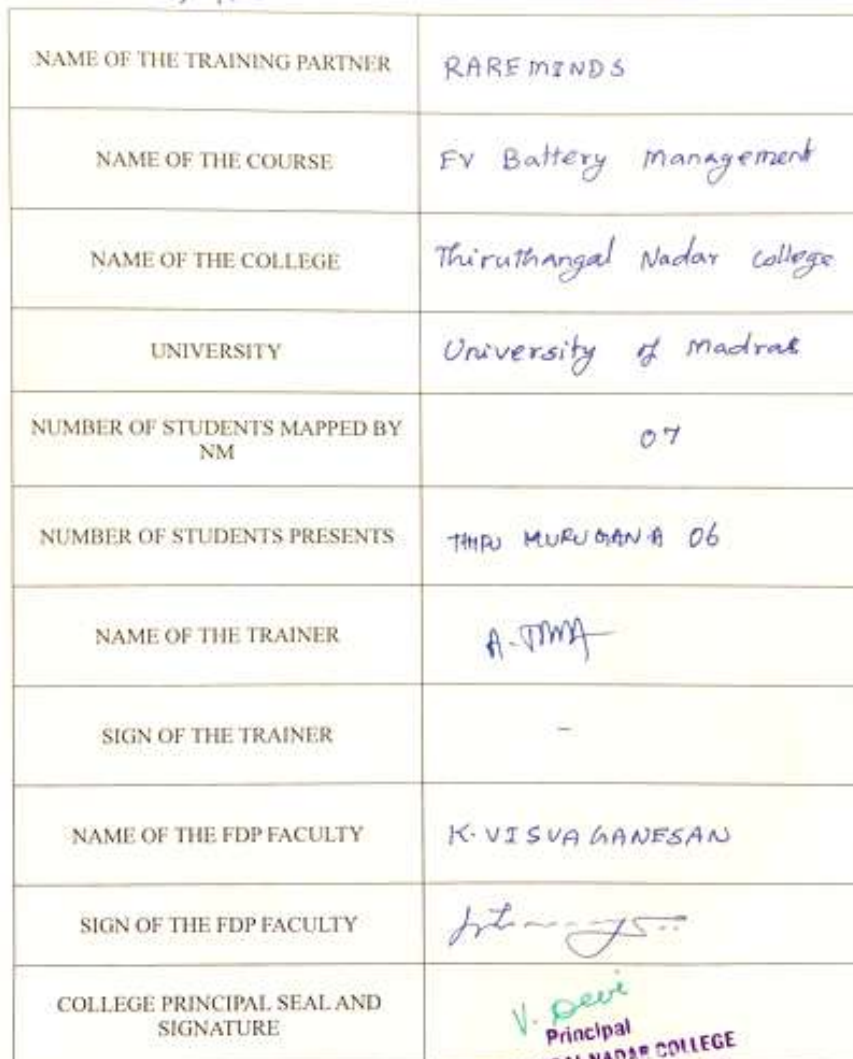 NAME OF THE TRAINING PARTNER RAREMINDS
NAME OF THE COURSE EV Battery Management
NAME OF THE COLLEGE Thiruthangal Nadar College
UNIVERSITY University of Madras
NUMBER OF STUDENTS MAPPED BY
NM 07
NUMBER OF STUDENTS PRESENTS THIRU MURUGAN A 06
NAME OF THE TRAINER
SIGN OF THE TRAINER -
NAME OF THE FDP FACULTY K. VISVAGANESAN
SIGN OF THE FDP FACULTY
COLLEGE PRINCIPAL SEAL AND
SIGNATURE V. Devi
Principal
NADAR COLLEGE